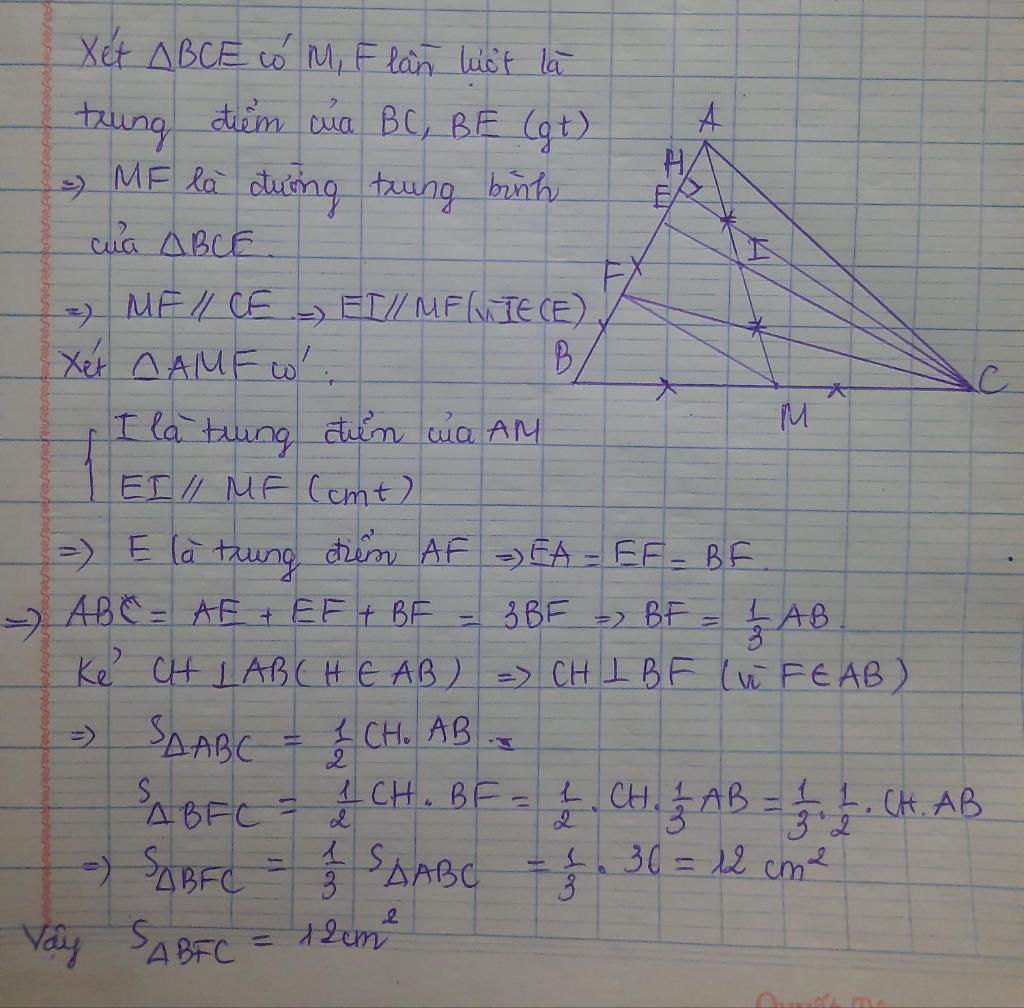 Xét ΔBCE có M, F lần lượt là
trung điểm của BC, BE (gt)
=> MF là đường trung bình
của ΔBCE.
=> MF // CE => EI // MF (vì I∈CE)
Xét ΔAMF có :
I là trung điểm của AM
EI // MF (cmt)
=> E là trung điểm AF => EA = EF = BF.
=> ABC = AE + EF + BF = 3BF => BF = 1/3 AB.
Kẻ CH ⊥ AB (H ∈ AB) => CH ⊥ BF (vì F∈AB)
=> SΔABC = 1/2 CH. AB.
SΔBFC = 1/2 CH. BF = 1/2 . CH. 1/3 AB = 1/3 . 1/2 . CH. AB
=> SΔBFC = 1/3 SΔABC = 1/3 . 36 = 12 cm²
Vậy SΔBFC = 12cm²
A
H
E
I
F
B
M
C